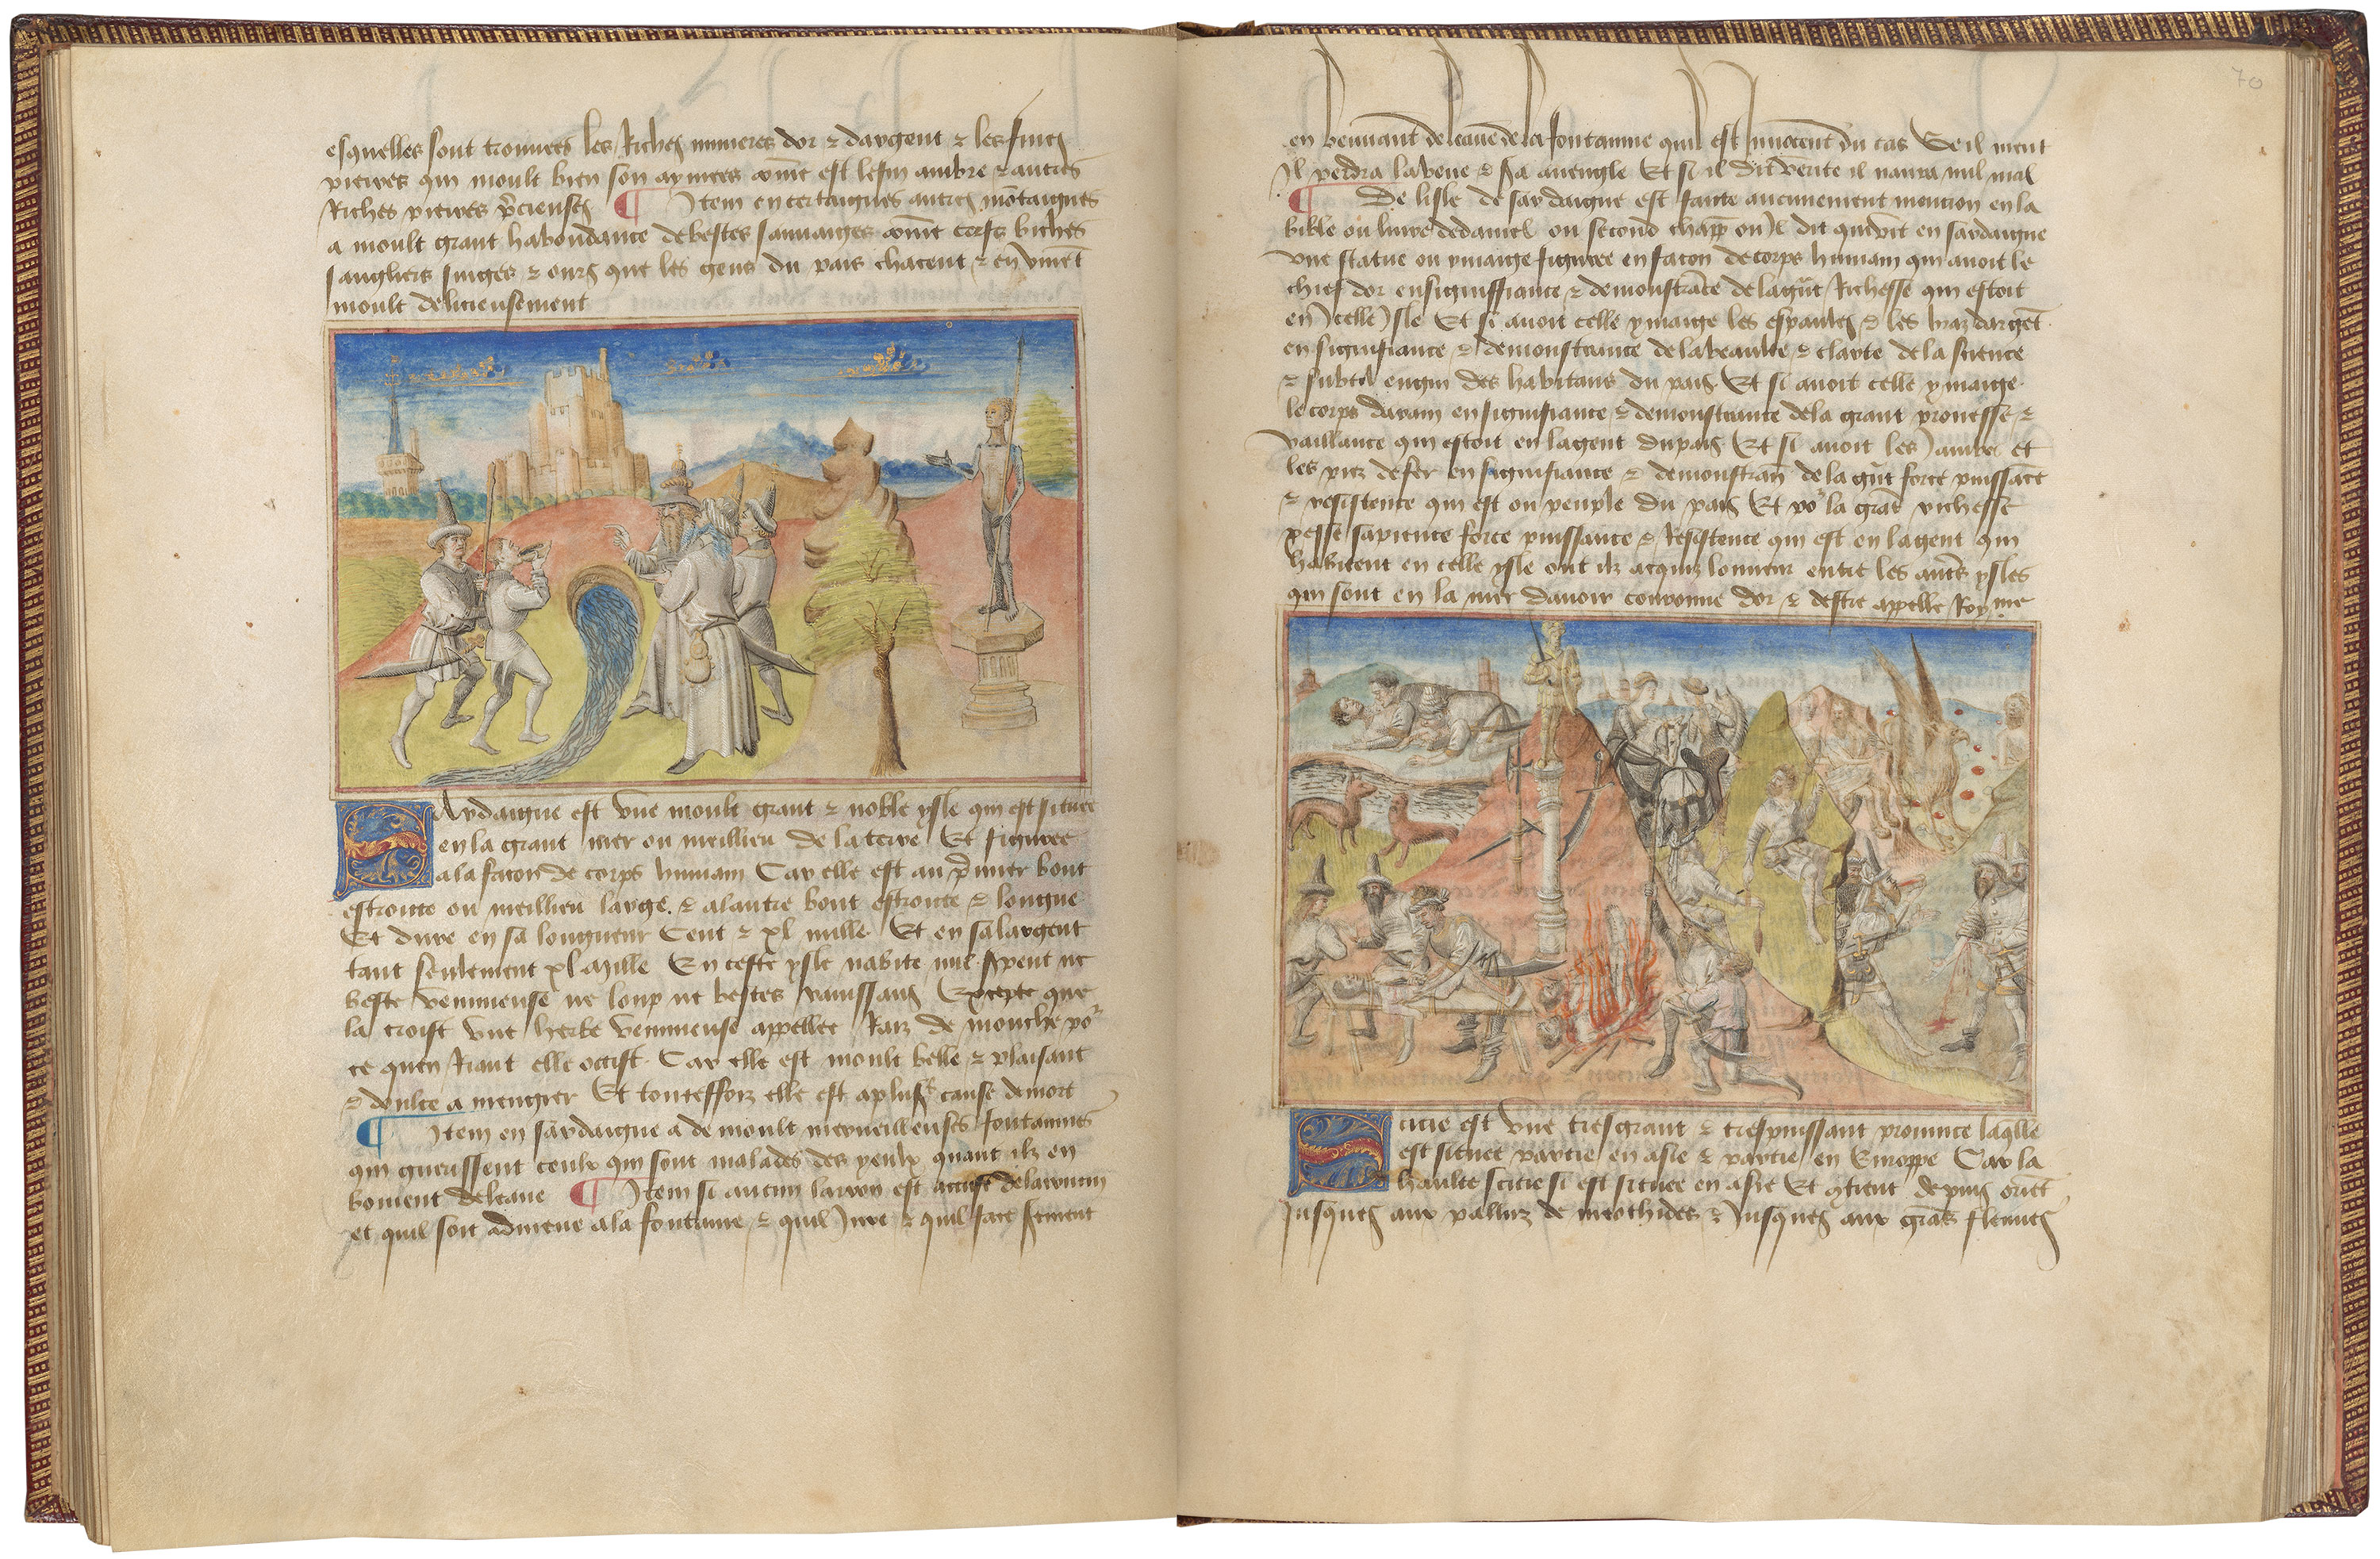 esquelles sont trouuees les Riches minieres dor & dargent & les fines
pierres qui moult bien son aymees com̄e est le fin ambre & autres
Riches pierres p̄cieuses ¶ Item en certaignes autres mōtaignes
a moult grant habondance de bestes sauuaiges com̄e cerfs biches
sangliers singes & ours que les gens du pais chacent & en viuēt
moult delicieusement
SArdaigne est vne moult grant & noble ysle qui est situee
en la grant mer ou meillieu de la terre Et figuree
a la facon de corps humain Car elle est au p̄mier bout
estroitte ou meillieu large. & a lautre bout estroitte & longue
Et dure en sa longueur Cent & xl mille Et en sa largeut
tant seulement xl Mille En ceste ysle nabite nul s̄pent ne
beste venimeuse ne loup ne bestes rauissans Excepte que
la croist vne herbe venimeuse appellee Raiz de mouche po^r
ce quen Riant elle occist Car elle est moult belle & plaisant
& doulce a mengier Et touteffoiz elle est a plus^rs cause de mort
¶ Item en sardaigne a de moult merueilleuses fontaines
qui guerissent ceulx qui sont malades des yeulx quant ilz en
boiuent de leaue ¶ Item si aucun larron est accuse de larrecin
et quil soit admene a la fontaine & quil Jure & quil face s̄ement
70
en beuuant de leaue de la fontainne quil est Innocent du cas Se il ment
Il perdra la veue & s̄a aueugle Et si il dit verite il naura nul mal
¶ De lisle de sardaigne est faite aucunement mencion en la
bible ou liure de daniel ou second chapp̄ ou Il dit quil vit en sardaigne
vne statue ou ymaige figuree en facon de corps humain qui auoit le
chief dor en signiffiance & demonstrāce de la gr̄nt Richesse qui estoit
en Icelle Isle Et si auoit celle ymaige les espaules & les braz dargēt
en signifiance & demonstrance de la beaulte & clarte de la science
& subtil engin des habitans du pais Et si auoit celle ymaige
le corps darain en signifiance & demonstrance de la grant prouesse &
vaillance qui estoit en la gent du pais Et si auoit les Jambes et
les piez de fer en signifiance & demonstran̄ de la gr̄nt force puissāce
& resistence qui est ou peuple du pais Et po^r la grāt richesse
sapience force puissance & Resistence qui est en la gent qui
habitent en celle ysle ont ilz acquiz lonneur entre les aūts ysles
qui sont en la mer dauoir couronne dor & destre appelle Royme
Scitie est vne tresgrant & trespuissant prouince laq̄lle
est situee partie en asie & partie en Europpe Car la
haulte scitie si est situee en asie Et 9tient depuis oriēt
Jusques aux palluz de meothides & Jusques aux grās fleuues